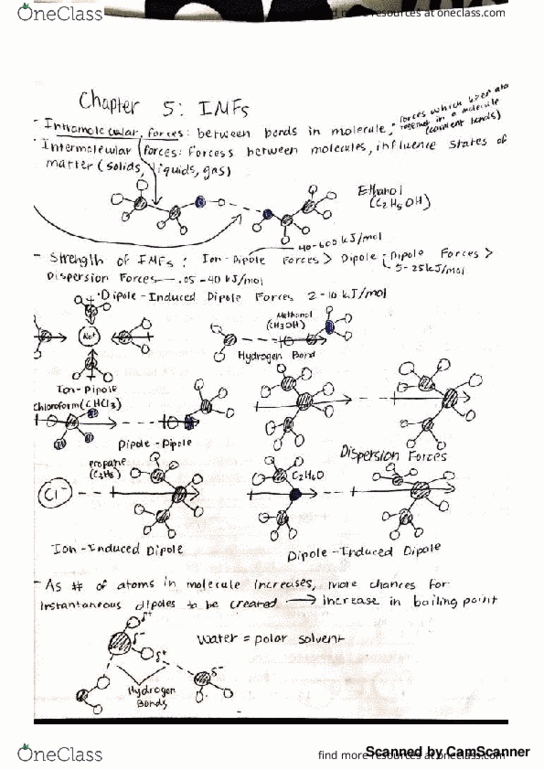 OneClass
find more resources at oneclass.com
Chapter 5: IMFs
forces which keep
together in a molecule
(covalent bonds)
- Intramolecular forces: between bonds in molecule;
- Intermolecular forces: Forcess between molecules, influence states of
matter (solids, liquids, gas)
Ethanol
(C2H5OH)
40-600 kJ/mol
- Strength of IMFs: Ion-Dipole Forces > Dipole-Dipole Forces >
5-25 kJ/mol
Dispersion Forces .05-40 kJ/mol
Dipole-Induced Dipole Forces 2-10 kJ/mol
Methanol
(CH3OH)
Na+
Hydrogen Bond
Ion-Dipole
Chloroform (CHCl3)
Dipole-Dipole
Dispersion Forces
propane
(C3H8)
C2H6O
Cl-
Ion-Induced Dipole
Dipole-Induced Dipole
- As # of atoms in molecule increases, more chances for
instantaneous dipoles to be created → increase in boiling point
δ+
δ-
Water = polar solvent
δ+
δ-
Hydrogen
Bonds
OneClass
find more resources at oneclass.com
Scanned by CamScanner